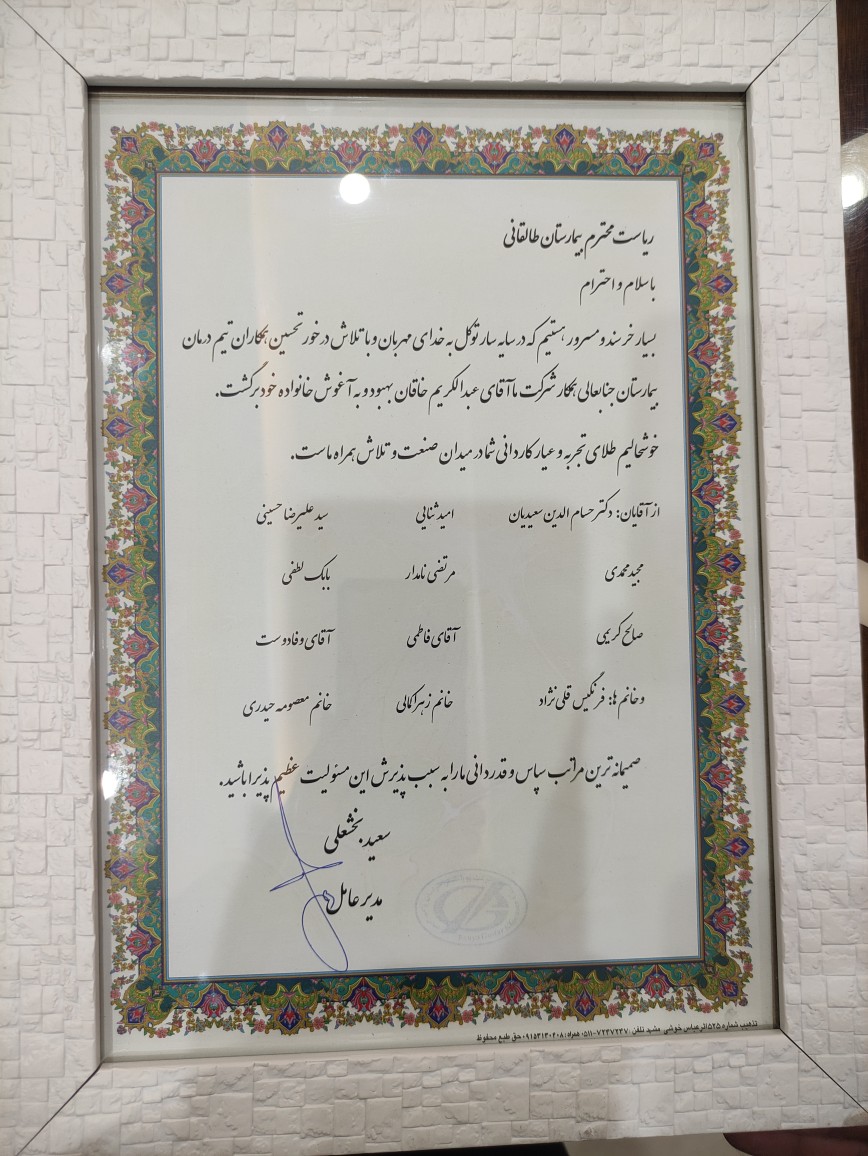 ریاست محترم بیمارستان طالقانی
با سلام و احترام
بسیار خرسند و مسرور هستیم که در سایه سار توکل به خدای مهربان و با تلاش در خور تحسین همکاران تیم درمان
بیمارستان جنابعالی همکار شرکت ما آقای عبدالکریم خاقان بهبود و به آغوش خانواده خود برگشت.
خوشحالیم طلای تجربه و عیار کاردانی شما در میدان صنعت و تلاش همراه ماست.
از آقایان: دکتر حسام الدین سعیدیان امید ثنایی سید علیرضا حسینی
مجید محمدی مرتضی نامدار بابک لطفی
صالح کریمی آقای فاطمی آقای وفادوست
و خانم ها: فرنگیس قلی نژاد خانم زهرا کمالی خانم معصومه حیدری
صمیمانه ترین مراتب سپاس و قدردانی ما را به سبب پذیرش این مسئولیت عظیم پذیرا باشید.
سعید بخشعلی
مدیر عامل
تذهیب شماره ۵۲۵ اثر عباس خوشی مشهد تلفن: ۷۲۳۷۲۳۷-۰۵۱۱ همراه: ۰۹۱۵۳۱۳۰۲۰۸ حق طبع محفوظ